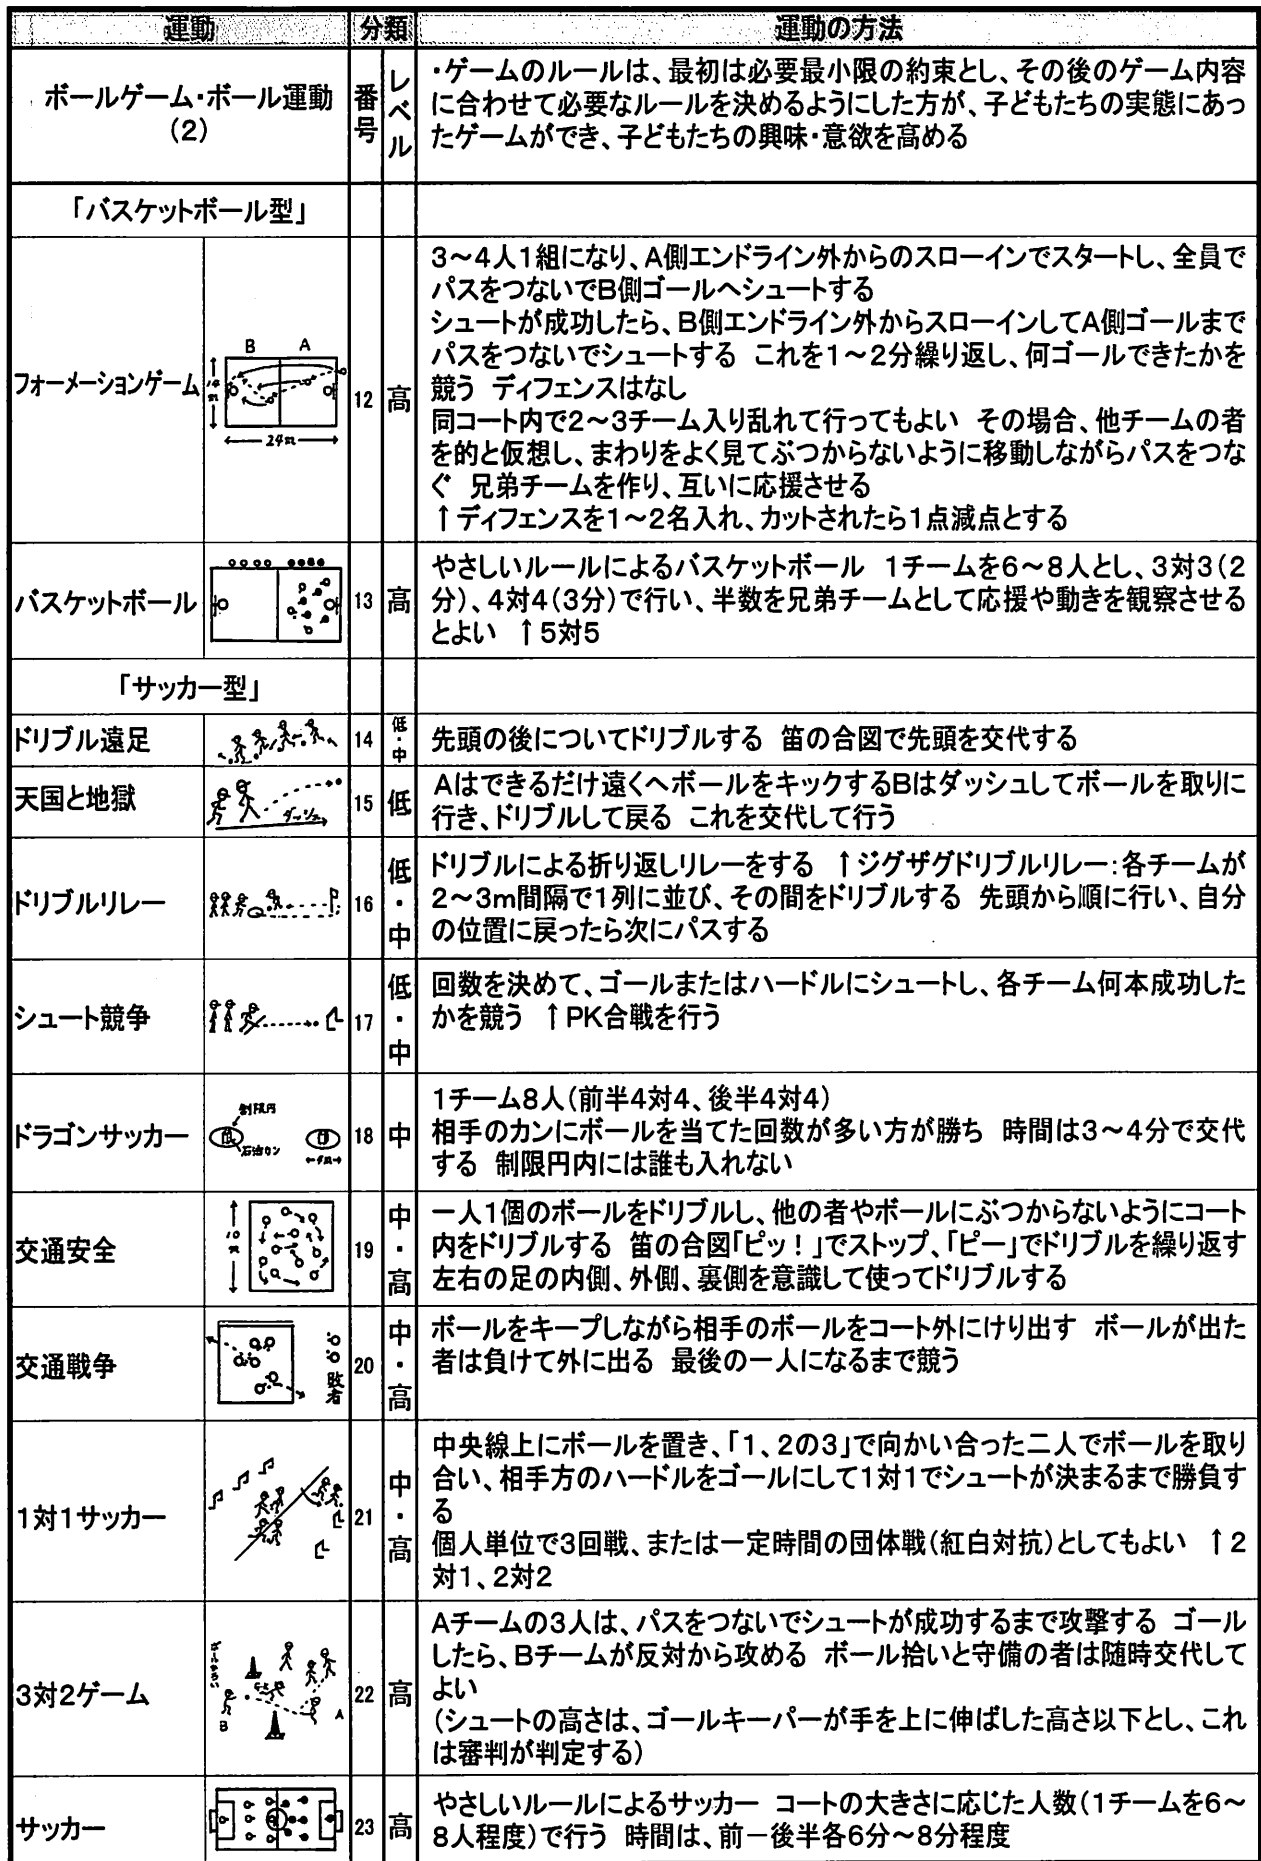 運動 分類 運動の方法
ボールゲーム・ボール運動
(2)
番号
レベル
・ゲームのルールは、最初は必要最小限の約束とし、その後のゲーム内容
に合わせて必要なルールを決めるようにした方が、子どもたちの実態にあっ
たゲームができ、子どもたちの興味・意欲を高める
「バスケットボール型」
フォーメーションゲーム
B A
24m
12 高
3～4人1組になり、A側エンドライン外からのスローインでスタートし、全員で
パスをつないでB側ゴールへシュートする
シュートが成功したら、B側エンドライン外からスローインしてA側ゴールまで
パスをつないでシュートする これを1～2分繰り返し、何ゴールできたかを
競う ディフェンスはなし
同コート内で2～3チーム入り乱れて行ってもよい その場合、他チームの者
を的と仮想し、まわりをよく見てぶつからないように移動しながらパスをつな
ぐ 兄弟チームを作り、互いに応援させる
↑ディフェンスを1～2名入れ、カットされたら1点減点とする
バスケットボール
13 高
やさしいルールによるバスケットボール 1チームを6～8人とし、3対3(2
分)、4対4(3分)で行い、半数を兄弟チームとして応援や動きを観察させる
とよい ↑5対5
「サッカー型」
ドリブル遠足
14 低・中
先頭の後についてドリブルする 笛の合図で先頭を交代する
天国と地獄
ダッシュ
15 低
Aはできるだけ遠くへボールをキックするBはダッシュしてボールを取りに
行き、ドリブルして戻る これを交代して行う
ドリブルリレー
16 低・中
ドリブルによる折り返しリレーをする ↑ジグザグドリブルリレー：各チームが
2～3m間隔で1列に並び、その間をドリブルする 先頭から順に行い、自分
の位置に戻ったら次にパスする
シュート競争
17 低・中
回数を決めて、ゴールまたはハードルにシュートし、各チーム何本成功した
かを競う ↑PK合戦を行う
ドラゴンサッカー
制限円
石油カン
4m
18 中
1チーム8人(前半4対4、後半4対4)
相手のカンにボールを当てた回数が多い方が勝ち 時間は3～4分で交代
する 制限円内には誰も入れない
交通安全
10m
19 中・高
一人1個のボールをドリブルし、他の者やボールにぶつからないようにコート
内をドリブルする 笛の合図「ピッ！」でストップ、「ピー」でドリブルを繰り返す
左右の足の内側、外側、裏側を意識して使ってドリブルする
交通戦争
敗者
20 中・高
ボールをキープしながら相手のボールをコート外にけり出す ボールが出た
者は負けて外に出る 最後の一人になるまで競う
1対1サッカー
21 中・高
中央線上にボールを置き、「1、2の3」で向かい合った二人でボールを取り
合い、相手方のハードルをゴールにして1対1でシュートが決まるまで勝負す
る
個人単位で3回戦、または一定時間の団体戦(紅白対抗)としてもよい ↑2
対1、2対2
3対2ゲーム
ボールひろい
B
A
22 高
Aチームの3人は、パスをつないでシュートが成功するまで攻撃する ゴール
したら、Bチームが反対から攻める ボール拾いと守備の者は随時交代して
よい
(シュートの高さは、ゴールキーパーが手を上に伸ばした高さ以下とし、これ
は審判が判定する)
サッカー
23 高
やさしいルールによるサッカー コートの大きさに応じた人数(1チームを6～
8人程度)で行う 時間は、前－後半各6分～8分程度